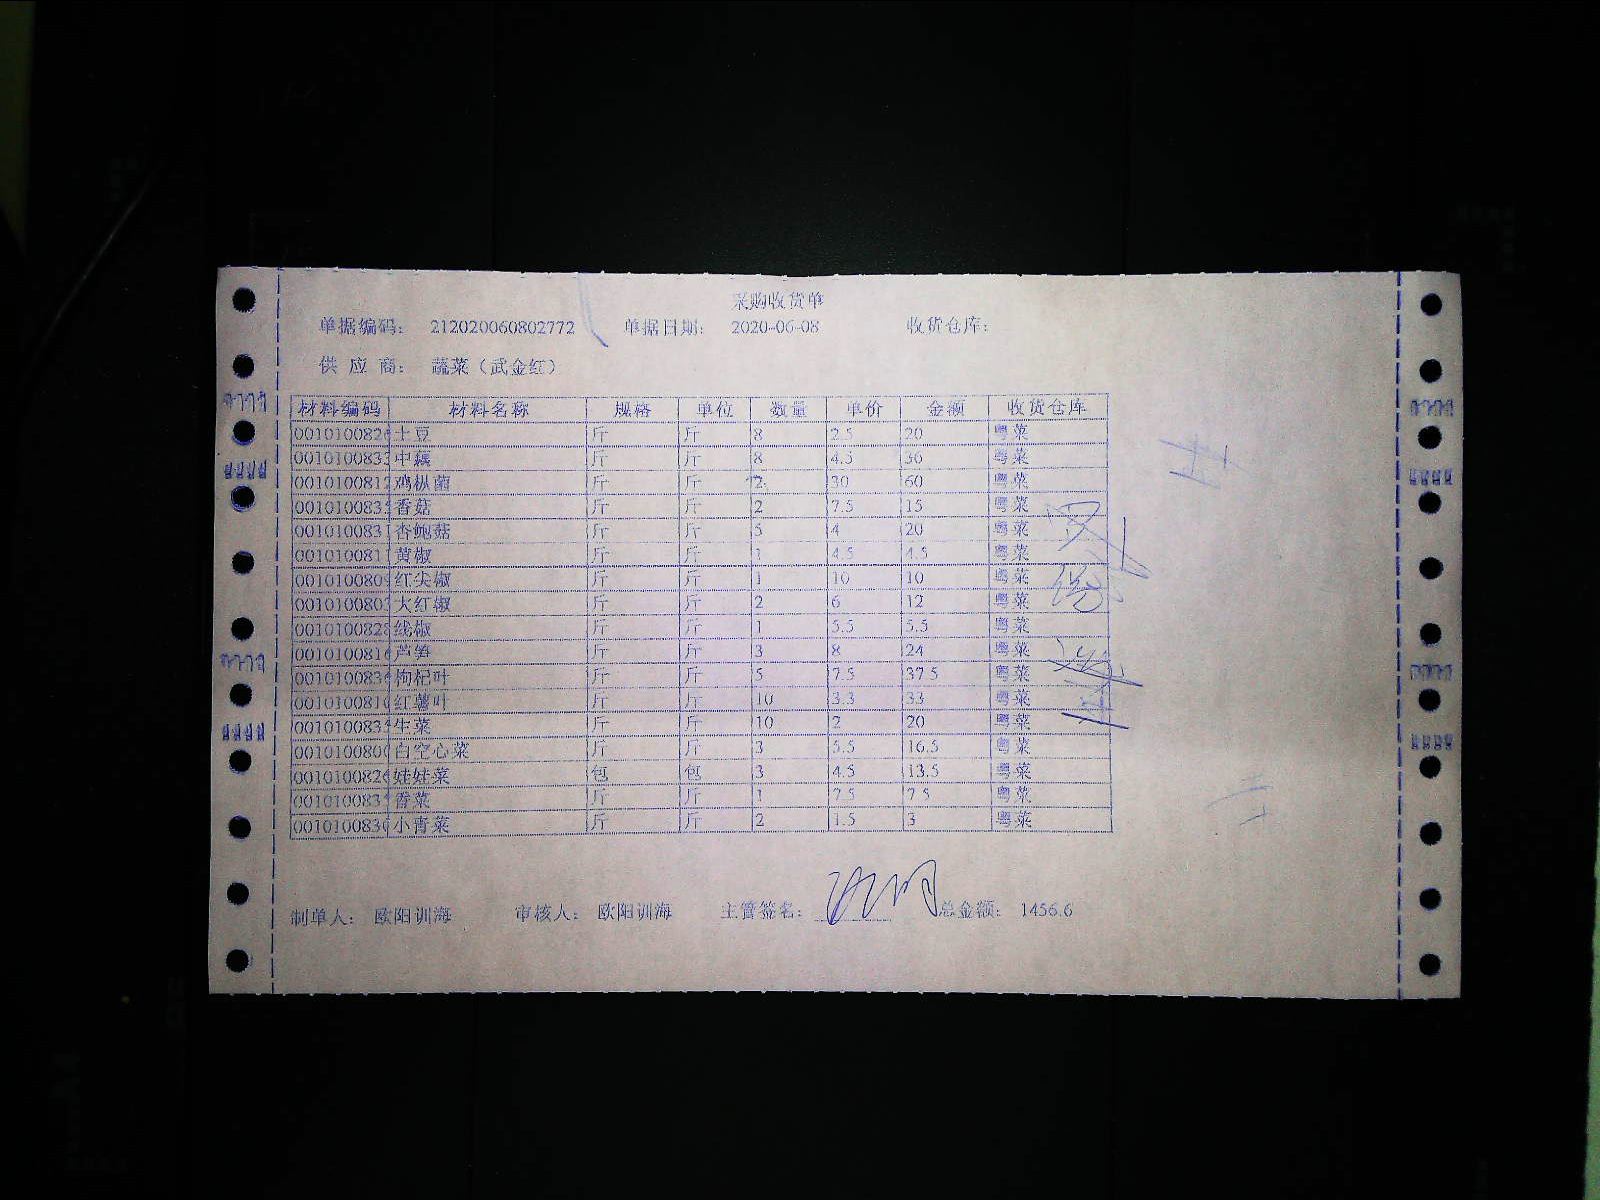 采购收货单
单据编码： 212020060802772 单据日期： 2020-06-08 收货仓库：
供 应 商： 蔬菜（武金红）
材料编码 材料名称 规格 单位 数量 单价 金额 收货仓库
001010082 土豆 斤 斤 8 2.5 20 粤菜
001010083 中藕 斤 斤 8 4.5 36 粤菜
001010081 鸡枞菌 斤 斤 2 30 60 粤菜
001010083 香菇 斤 斤 2 7.5 15 粤菜
001010083 杏鲍菇 斤 斤 5 4 20 粤菜
001010081 黄椒 斤 斤 1 4.5 4.5 粤菜
001010080 红尖椒 斤 斤 1 10 10 粤菜
001010080 大红椒 斤 斤 2 6 12 粤菜
001010082 线椒 斤 斤 1 5.5 5.5 粤菜
001010081 芦笋 斤 斤 3 8 24 粤菜
001010083 枸杞叶 斤 斤 5 7.5 37.5 粤菜
001010081 红薯叶 斤 斤 10 3.3 33 粤菜
001010083 生菜 斤 斤 10 2 20 粤菜
001010080 白空心菜 斤 斤 3 5.5 16.5 粤菜
001010082 娃娃菜 包 包 3 4.5 13.5 粤菜
001010083 香菜 斤 斤 1 7.5 7.5 粤菜
001010083 小青菜 斤 斤 2 1.5 3 粤菜
制单人： 欧阳训海 审核人： 欧阳训海 主管签名： 总金额： 1456.6